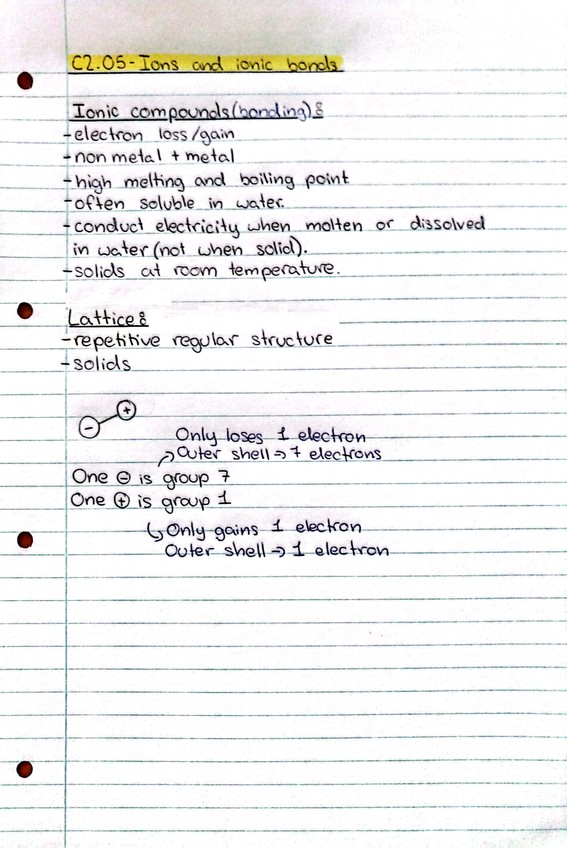 C2.05-Ions and ionic bonds
Ionic compounds(bonding):
-electron loss/gain
-non metal + metal
-high melting and boiling point
-often soluble in water.
-conduct electricity when molten or dissolved
in water (not when solid).
-solids at room temperature.
Lattice:
-repetitive regular structure
-solids
⊖ ⊕
Only loses 1 electron
Outer shell → 7 electrons
One ⊖ is group 7
One ⊕ is group 1
Only gains 1 electron
Outer shell → 1 electron